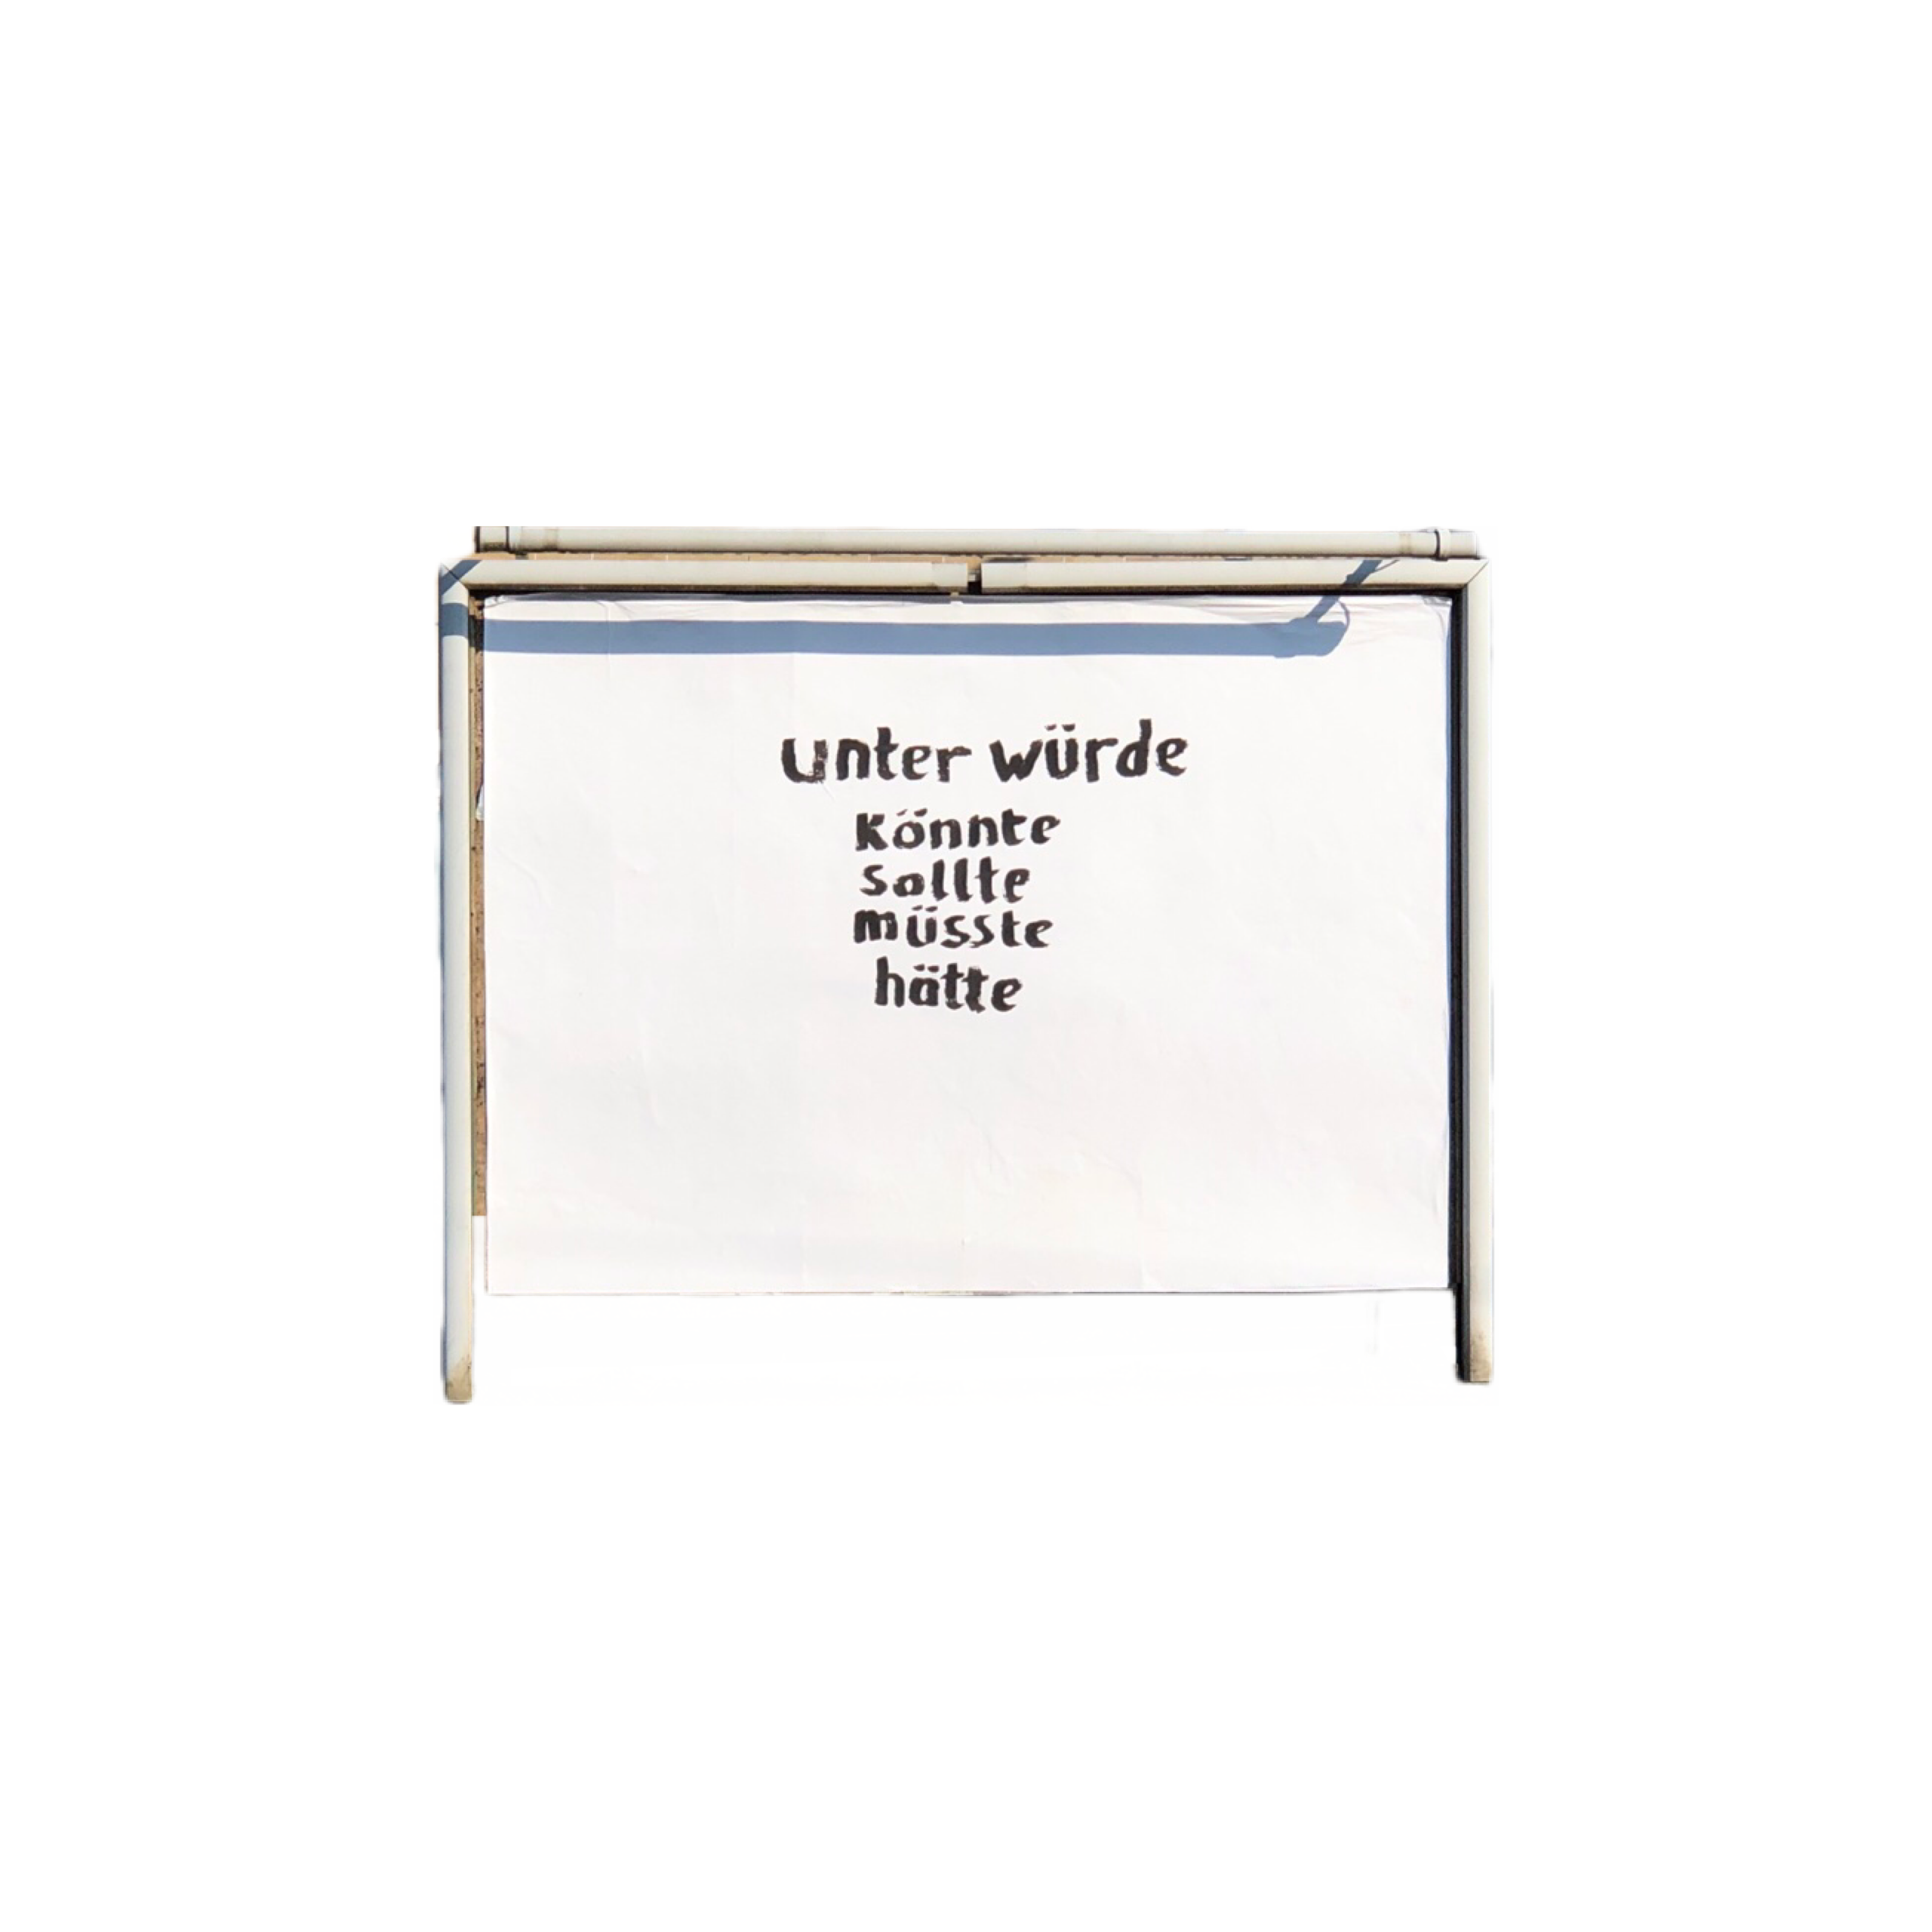 unter würde
könnte
sollte
müsste
hätte